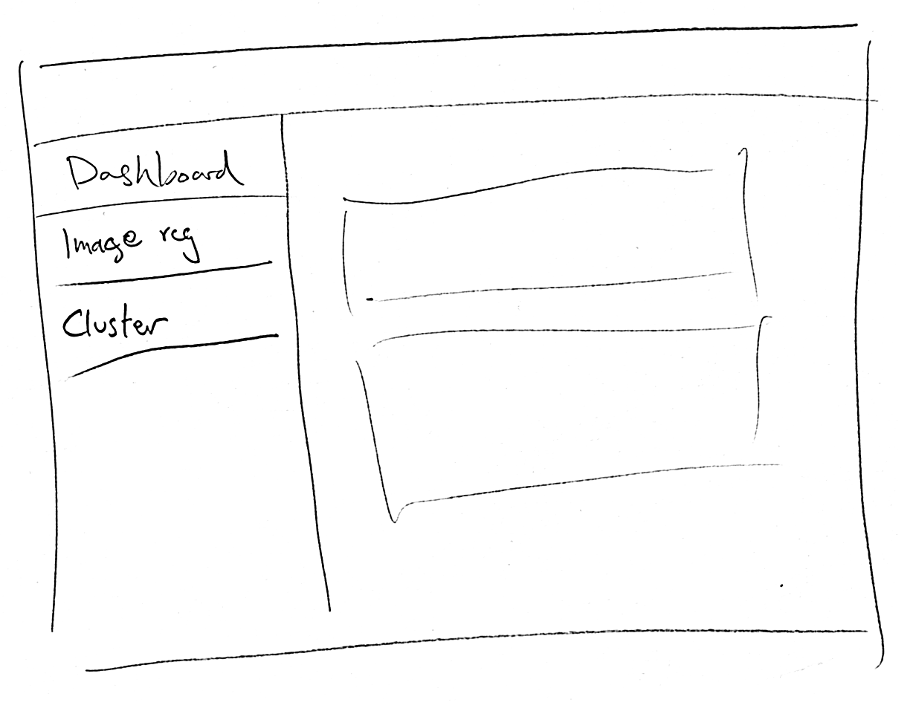 Dashboard
Image reg
Cluster